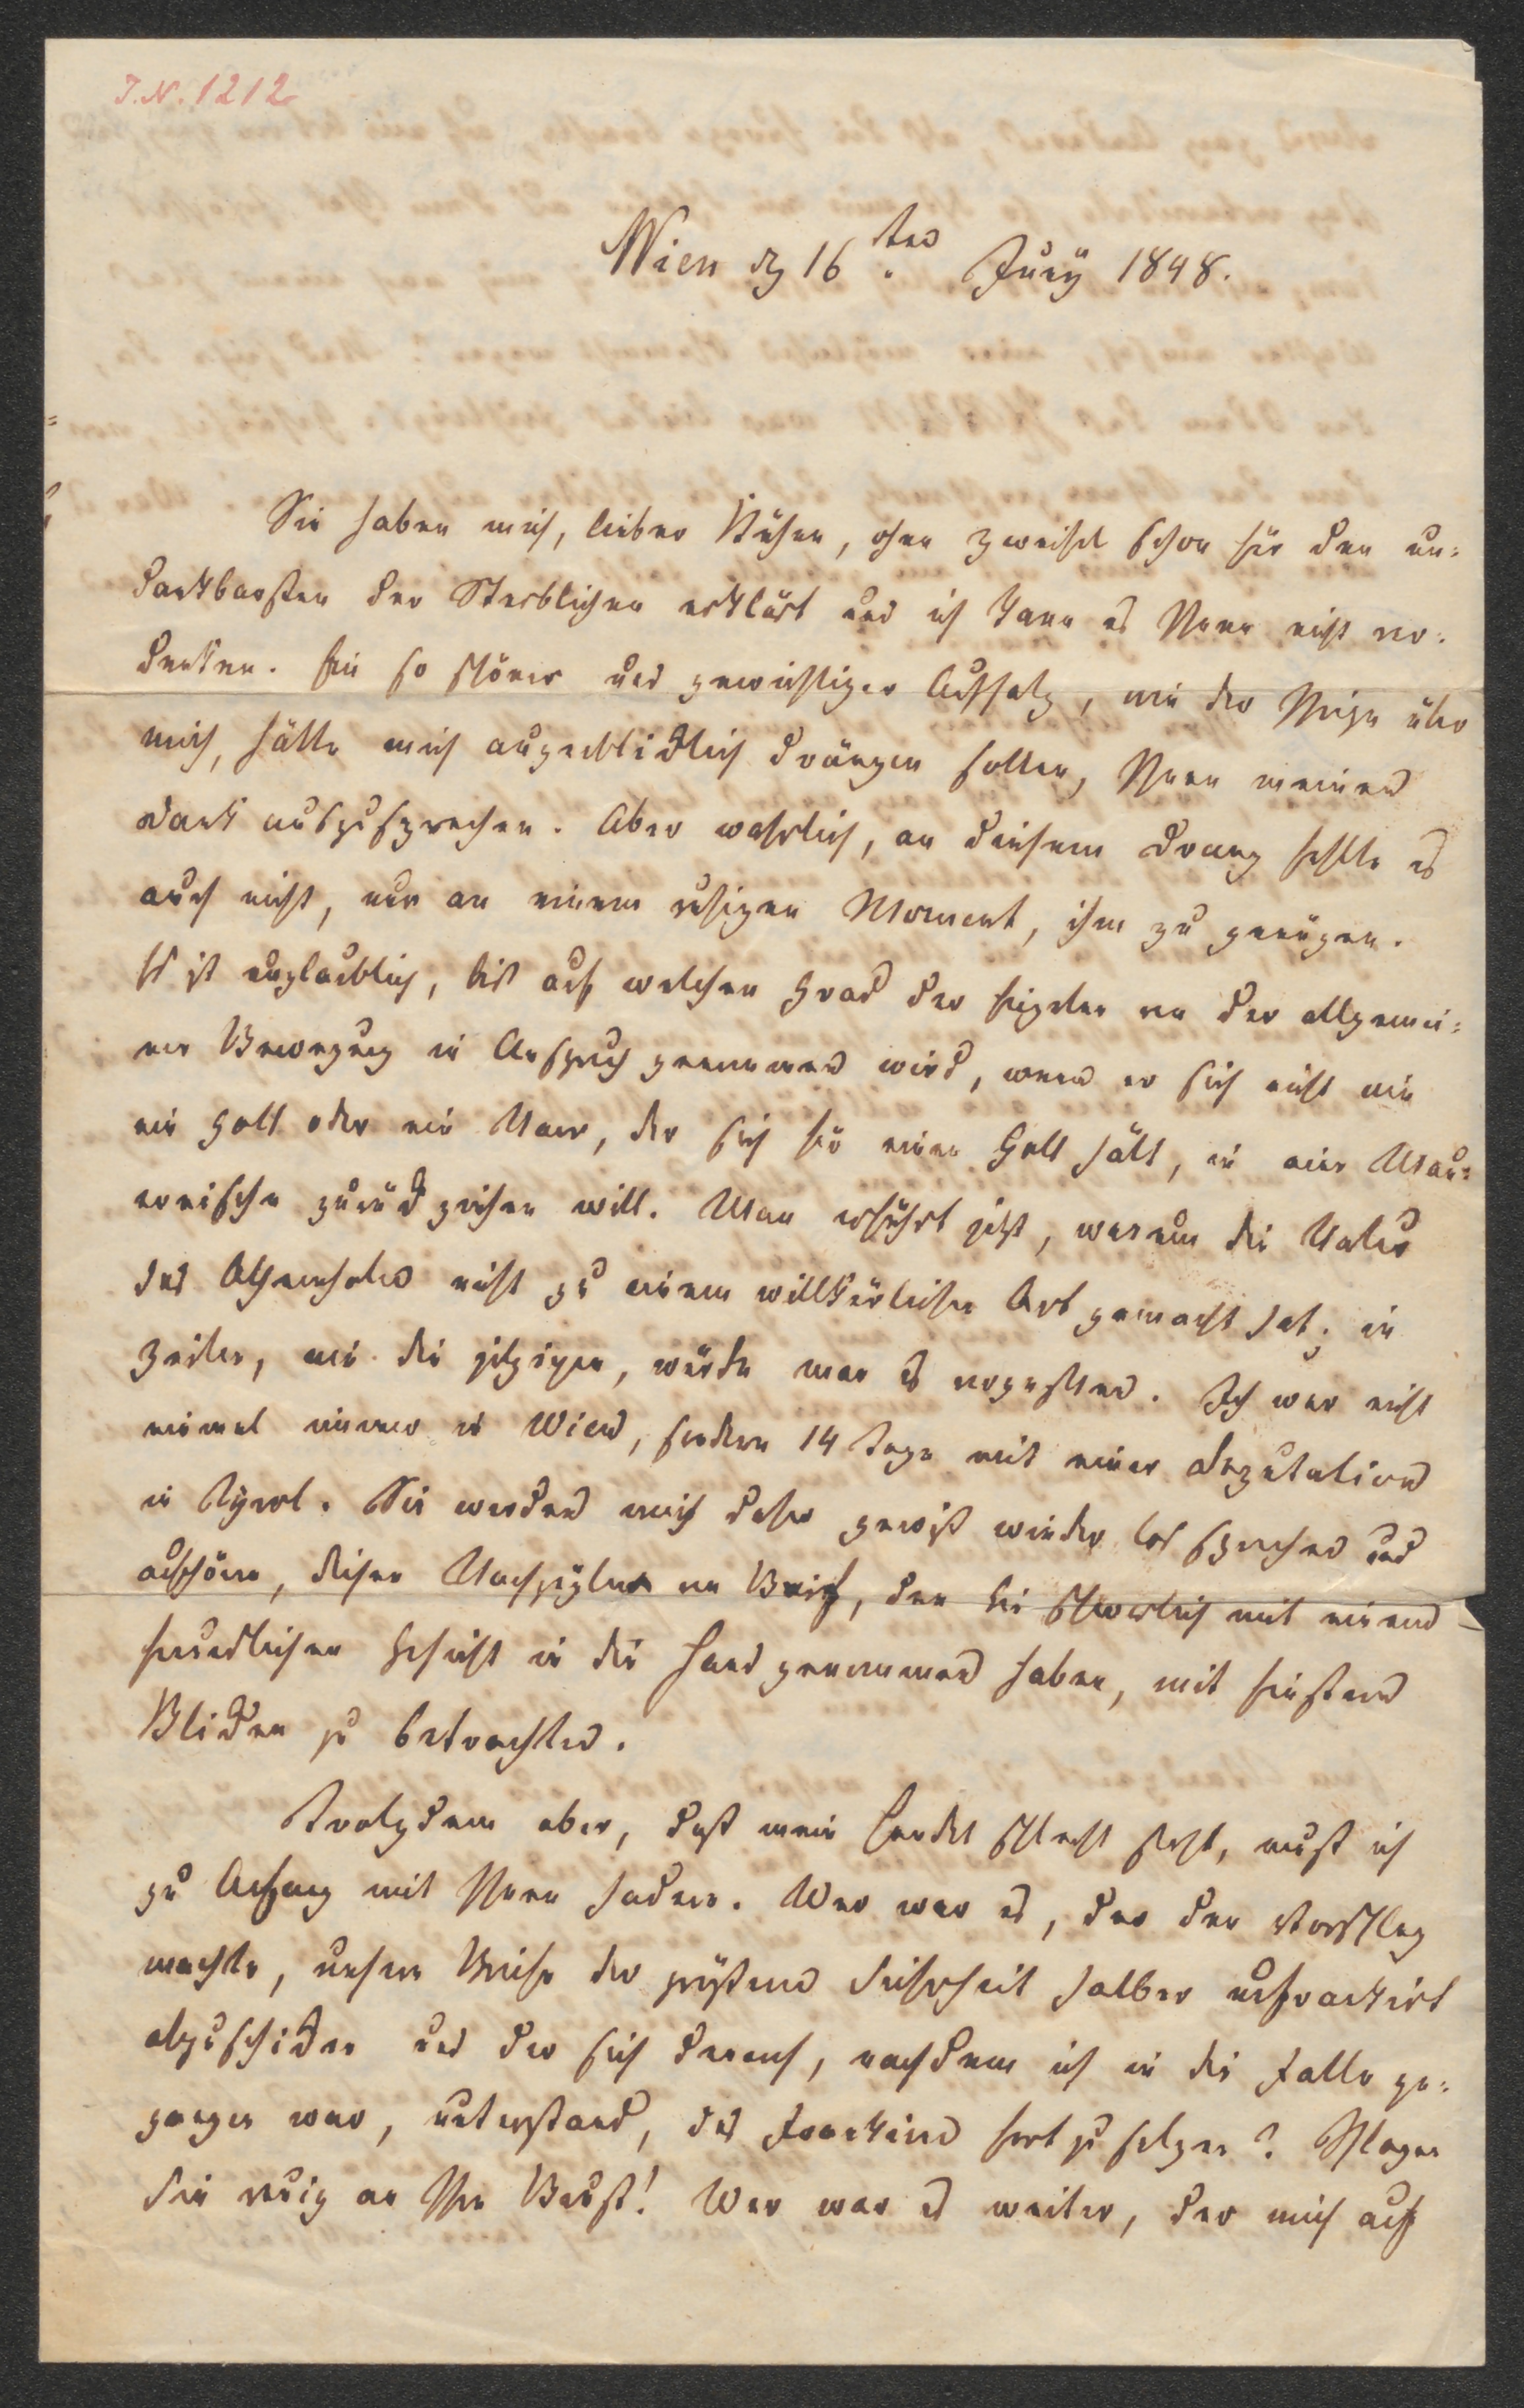 J.N. 1212
Wien d 16ten Juny 1848.
Sie haben mich, lieber Kühne, ohne Zweifel schon für den un=
dankbarsten der Sterblichen erklärt und ich kann es Ihnen nicht ver=
denken. Ein so schöner und gewichtiger Aufsatz, wie der Ihrige über
mich, hätte mich augenblicklich drängen sollen, Ihnen meinen
Dank auszusprechen. Aber wahrlich, an diesem Drang fehlte es
auch nicht, nur an einem ruhigen Moment, ihm zu genügen.
Es ist unglaublich, bis auf welchen Grad der Einzelne von der allgemei=
nen Bewegung in Anspruch genommen wird, wenn er sich nicht wie
ein Gott oder ein Narr, der sich für einen Gott hält, in eine Mau=
ernische zurück ziehen will. Man erfährt jetzt, warum die Natur
das Athemholen nicht zu einem willkürlichen Act gemacht hat; in
Zeiten, wie die jetzigen, würde man es vergessen. Ich war nicht
einmal immer in Wien, sondern 14 Tage mit einer Deputation
in Tyrol. Sie werden mich daher gewiß wieder los sprechen und
aufhören, diesen Nachzügler von Brief, den Sie schwerlich mit einem
freundlichen Gesicht in die Hand genommen haben, mit finstern
Blicken zu betrachten.
Trotzdem aber, daß mein Handel schlecht steht, muß ich
zu Anfang mit Ihnen hadern. Wer war es, der den Vorschlag
machte, unsere Briefe der größern Sicherheit halber unfrankirt
abzuschicken und der sich dennoch, nachdem ich in die Falle ge=
gangen war, unterstand, das Frankiren fortzusetzen? Schlagen
Sie reuig an Ihre Brust! Wer war es weiter, der mich auf